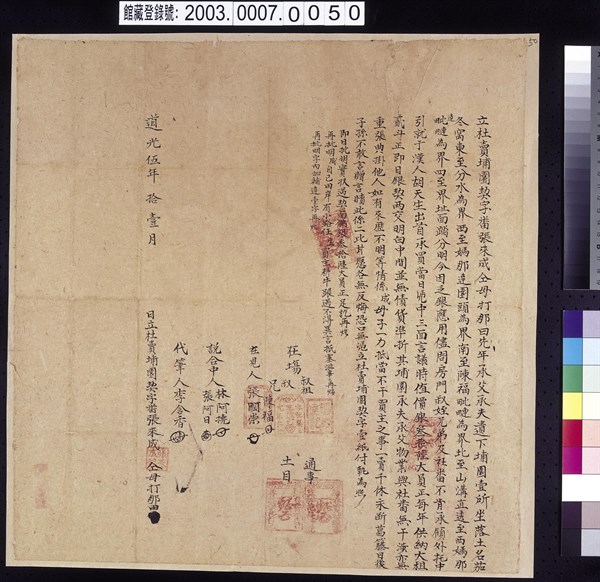 館藏登錄號: 2003.0007.0050
50
立杜賣埔園契字番張來成仝母打那曰先年承父承夫遺下埔園壹所坐落土名茄
冬窩東至分水為界西至媽那達園頭為界南至陳福毗連為界北至山溝直透至西媽那
達毗連為界四至界址面踏分明今因乏銀應用儘問房門叔姪兄弟及社番不肯承領外托中
引就于漢人胡天生出首承買當日憑中三面言議時值價銀叁拾陸大員正每年供納大租
貳斗正即日銀契兩交明白中間並無債貨準折其埔園承夫承父物業與社番無干涉亦無
重張典掛他人如有來歷不明等情係成母子一力抵當不干買主之事一賣千休永斷葛藤日後
子孫不敢言贈言贖此係二比甘愿各無反悔恐口無憑立杜賣埔園契字壹紙付執為照
即日批明實收過契面銀叁拾陸大員正足訖再炤
再批明成自己田岸有小路任生買主耕牛踏過不得異言抵塞滋事再炤
再批明字內加補達壹字再炤
在場
叔祖
叔
兄
陳福
在見人張鳳崇
說合中人
林阿攏
張阿日
代筆人李含香
通事
土目
日立杜賣埔園契字番張來成
仝母打那
道光伍年拾壹月